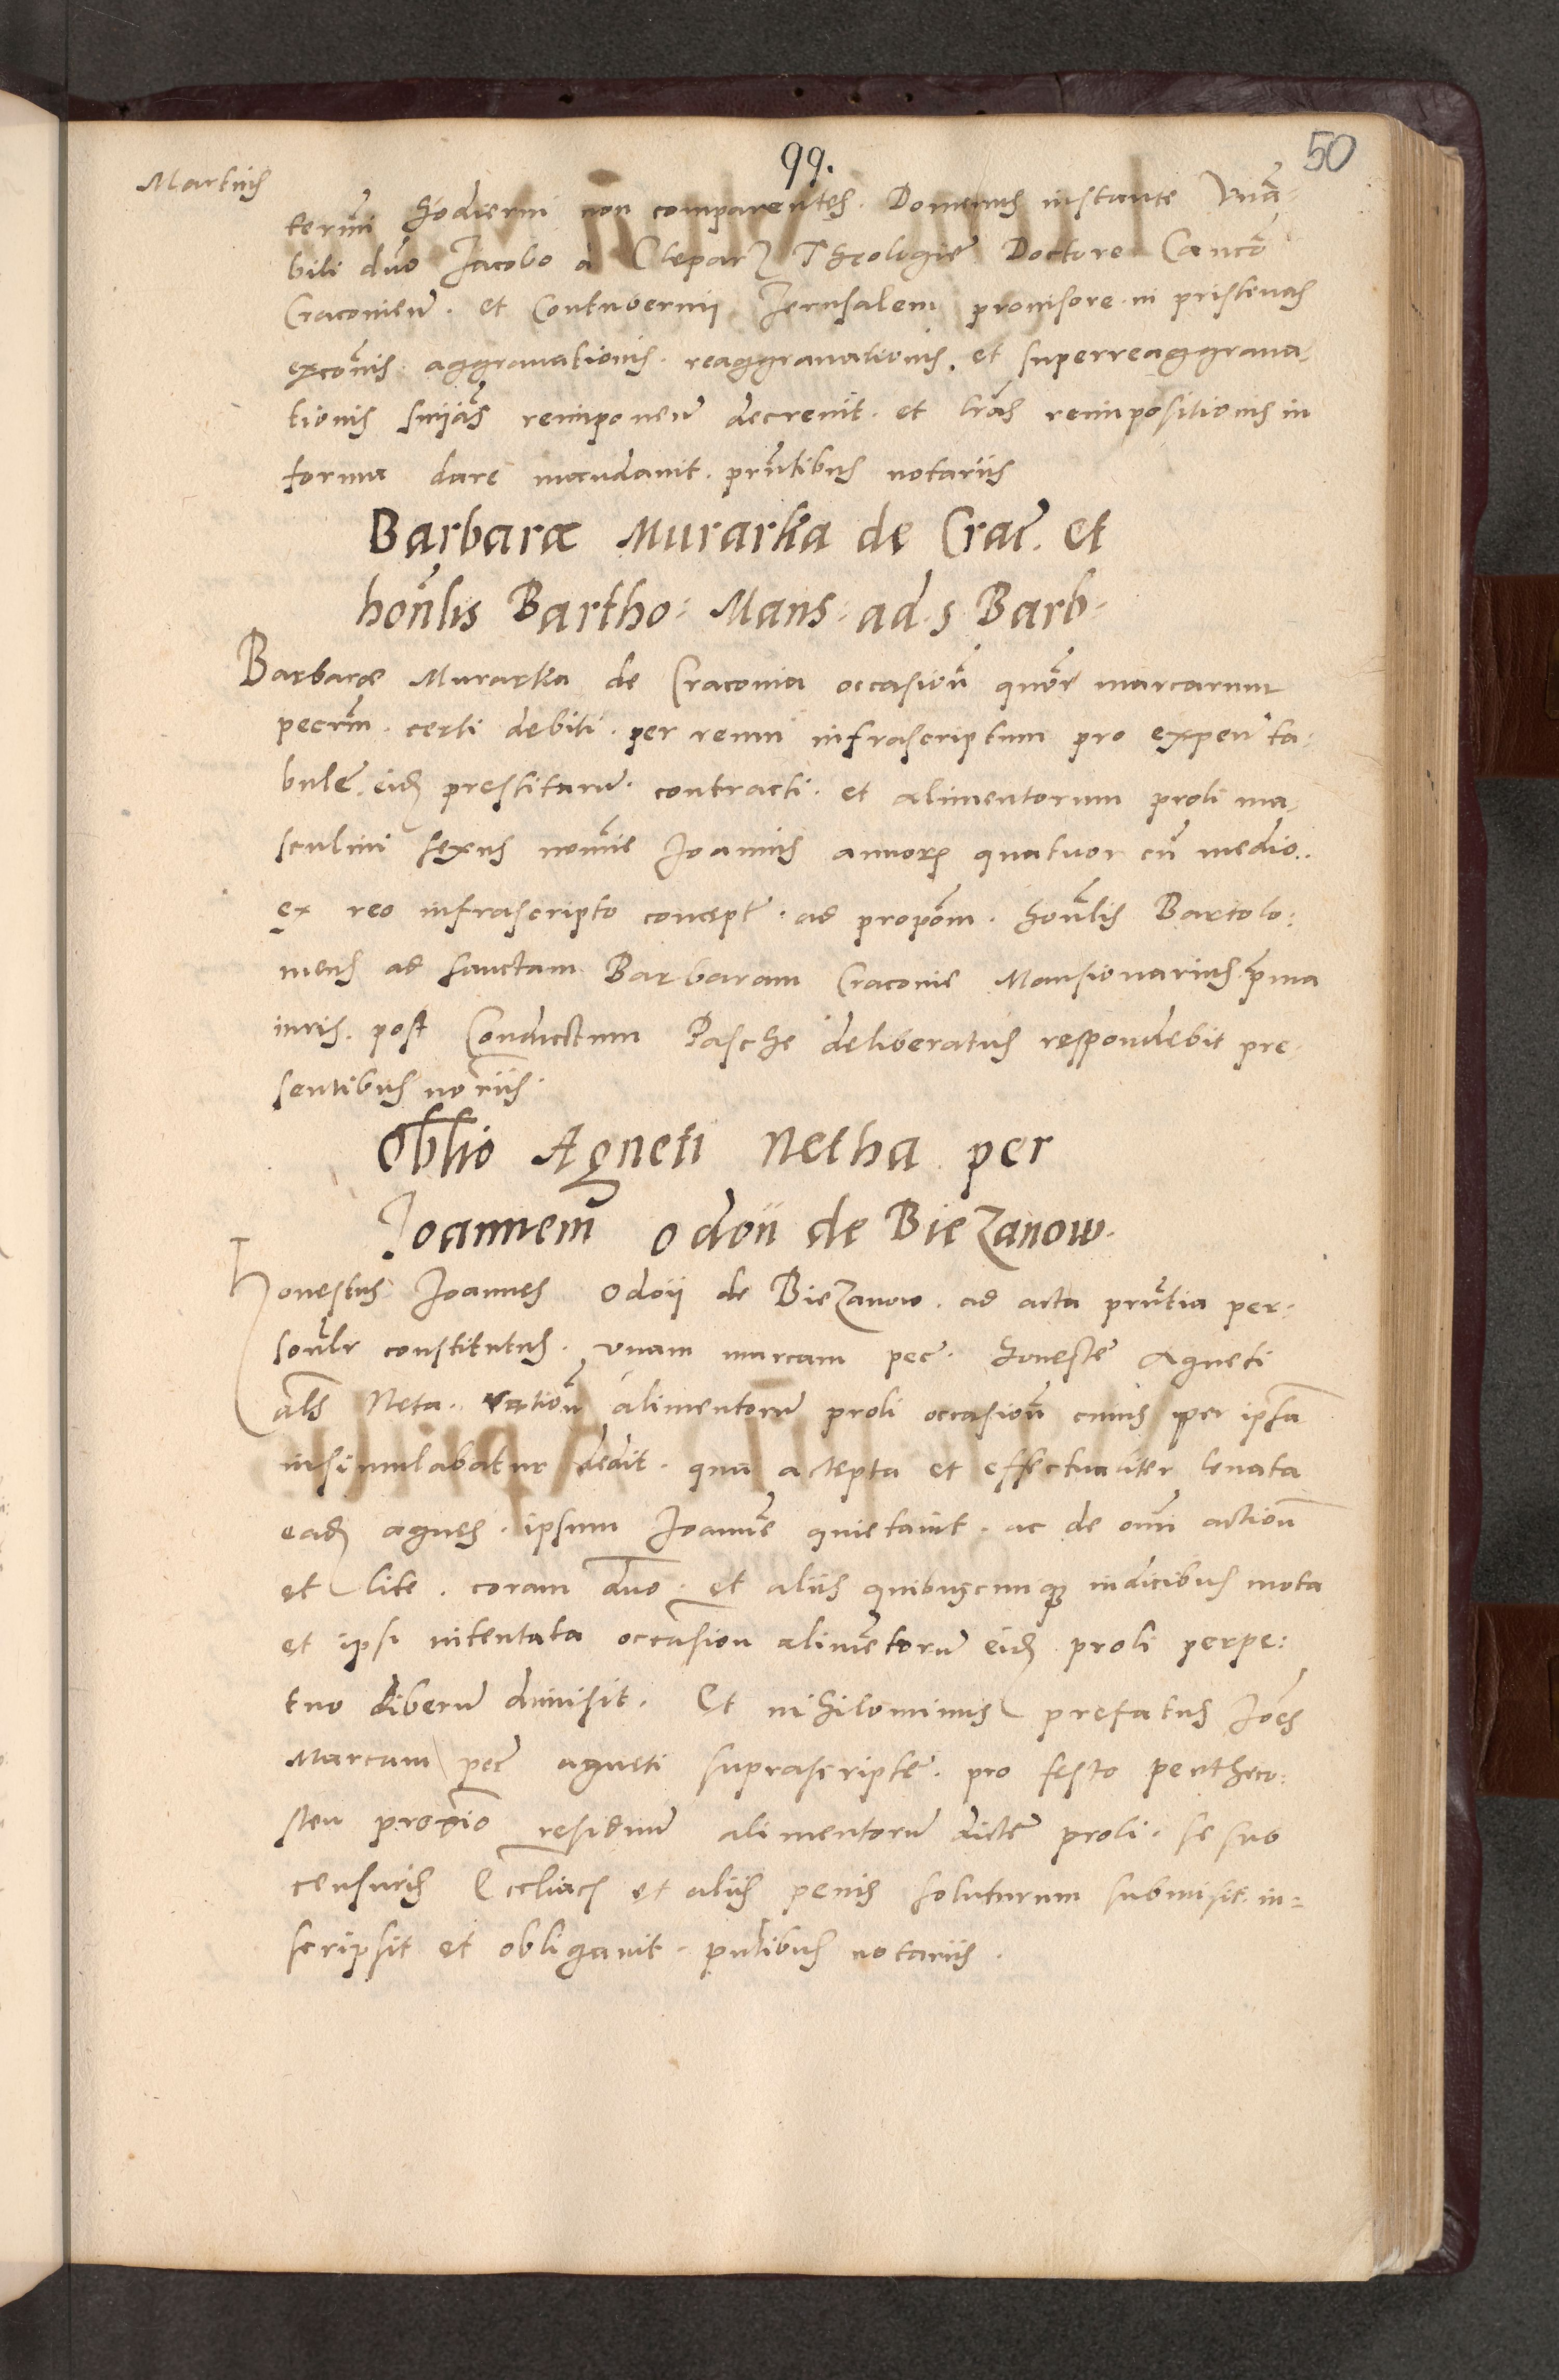 99.
50
Martius
termi hodierni non comparentes. Dominus instante Vnã-
bili dno Jacobo a Cleparz Theologie Doctore Canco
Cracouien. et Contubernij Jerusalem prouisore in pristinas
excōis. aggrauationis. reaggrauationis. et superreaggraua-
tionis snĩas reimponen decreuit. et lrãs reimpositionis in
forma dare mandauit. prñtibus notariis
Barbaræ Murarka de Crac. et
honlis Bartho: Mans: ad s Barb.
Barbaræ Murarka de Cracouia occasioñ quor marcarum
pecrm. certi debiti. per reum infrascriptum pro expen ta:
bule eidẽ prestitarum contracti. et alimentorum proli ma-
sculini sexus nomie Joannis annorum quatuor cũ medio..
ex reo infrascripto concepte. ad propõm. honlis Bartolo:
meus ad sanctam Barbaram Cracouie Mansionarius prima
iuris. post Conductum Pasche deliberatus respondebit pre-
sentibus noriis.
Oblio Agneti Netha per
Joannem odoii de Biezanow.
Honestus Joannes Odoij de Biezanow. ad acta prñtia per-
sonlr constitutus. vnam marcam pec. honeste Agneti
als Neta. rationi alimentorum proli occasioñ cuius per ipsã
insimulabatur dedit. qua accepta et effectualiter leuata
eadẽ agnes. ipsum Joannẽ quietauit. ac de omni actionẽ
et lite. coram dno. et aliis quibuscunque iudicibus mota
et ipsi intentata occasion alimentorum eidẽ proli perpe:
tuo liberum dimisit. Et nihilominus prefatus Joes
Marcam pec agneti suprascripte. pro festo pentheco:
sten proxio residuum alimentorum dicte proli. se sub
censuris Eccliacis et aliis penis soluturum submisit. in=
scripsit et obligauit. pntibus notariis.